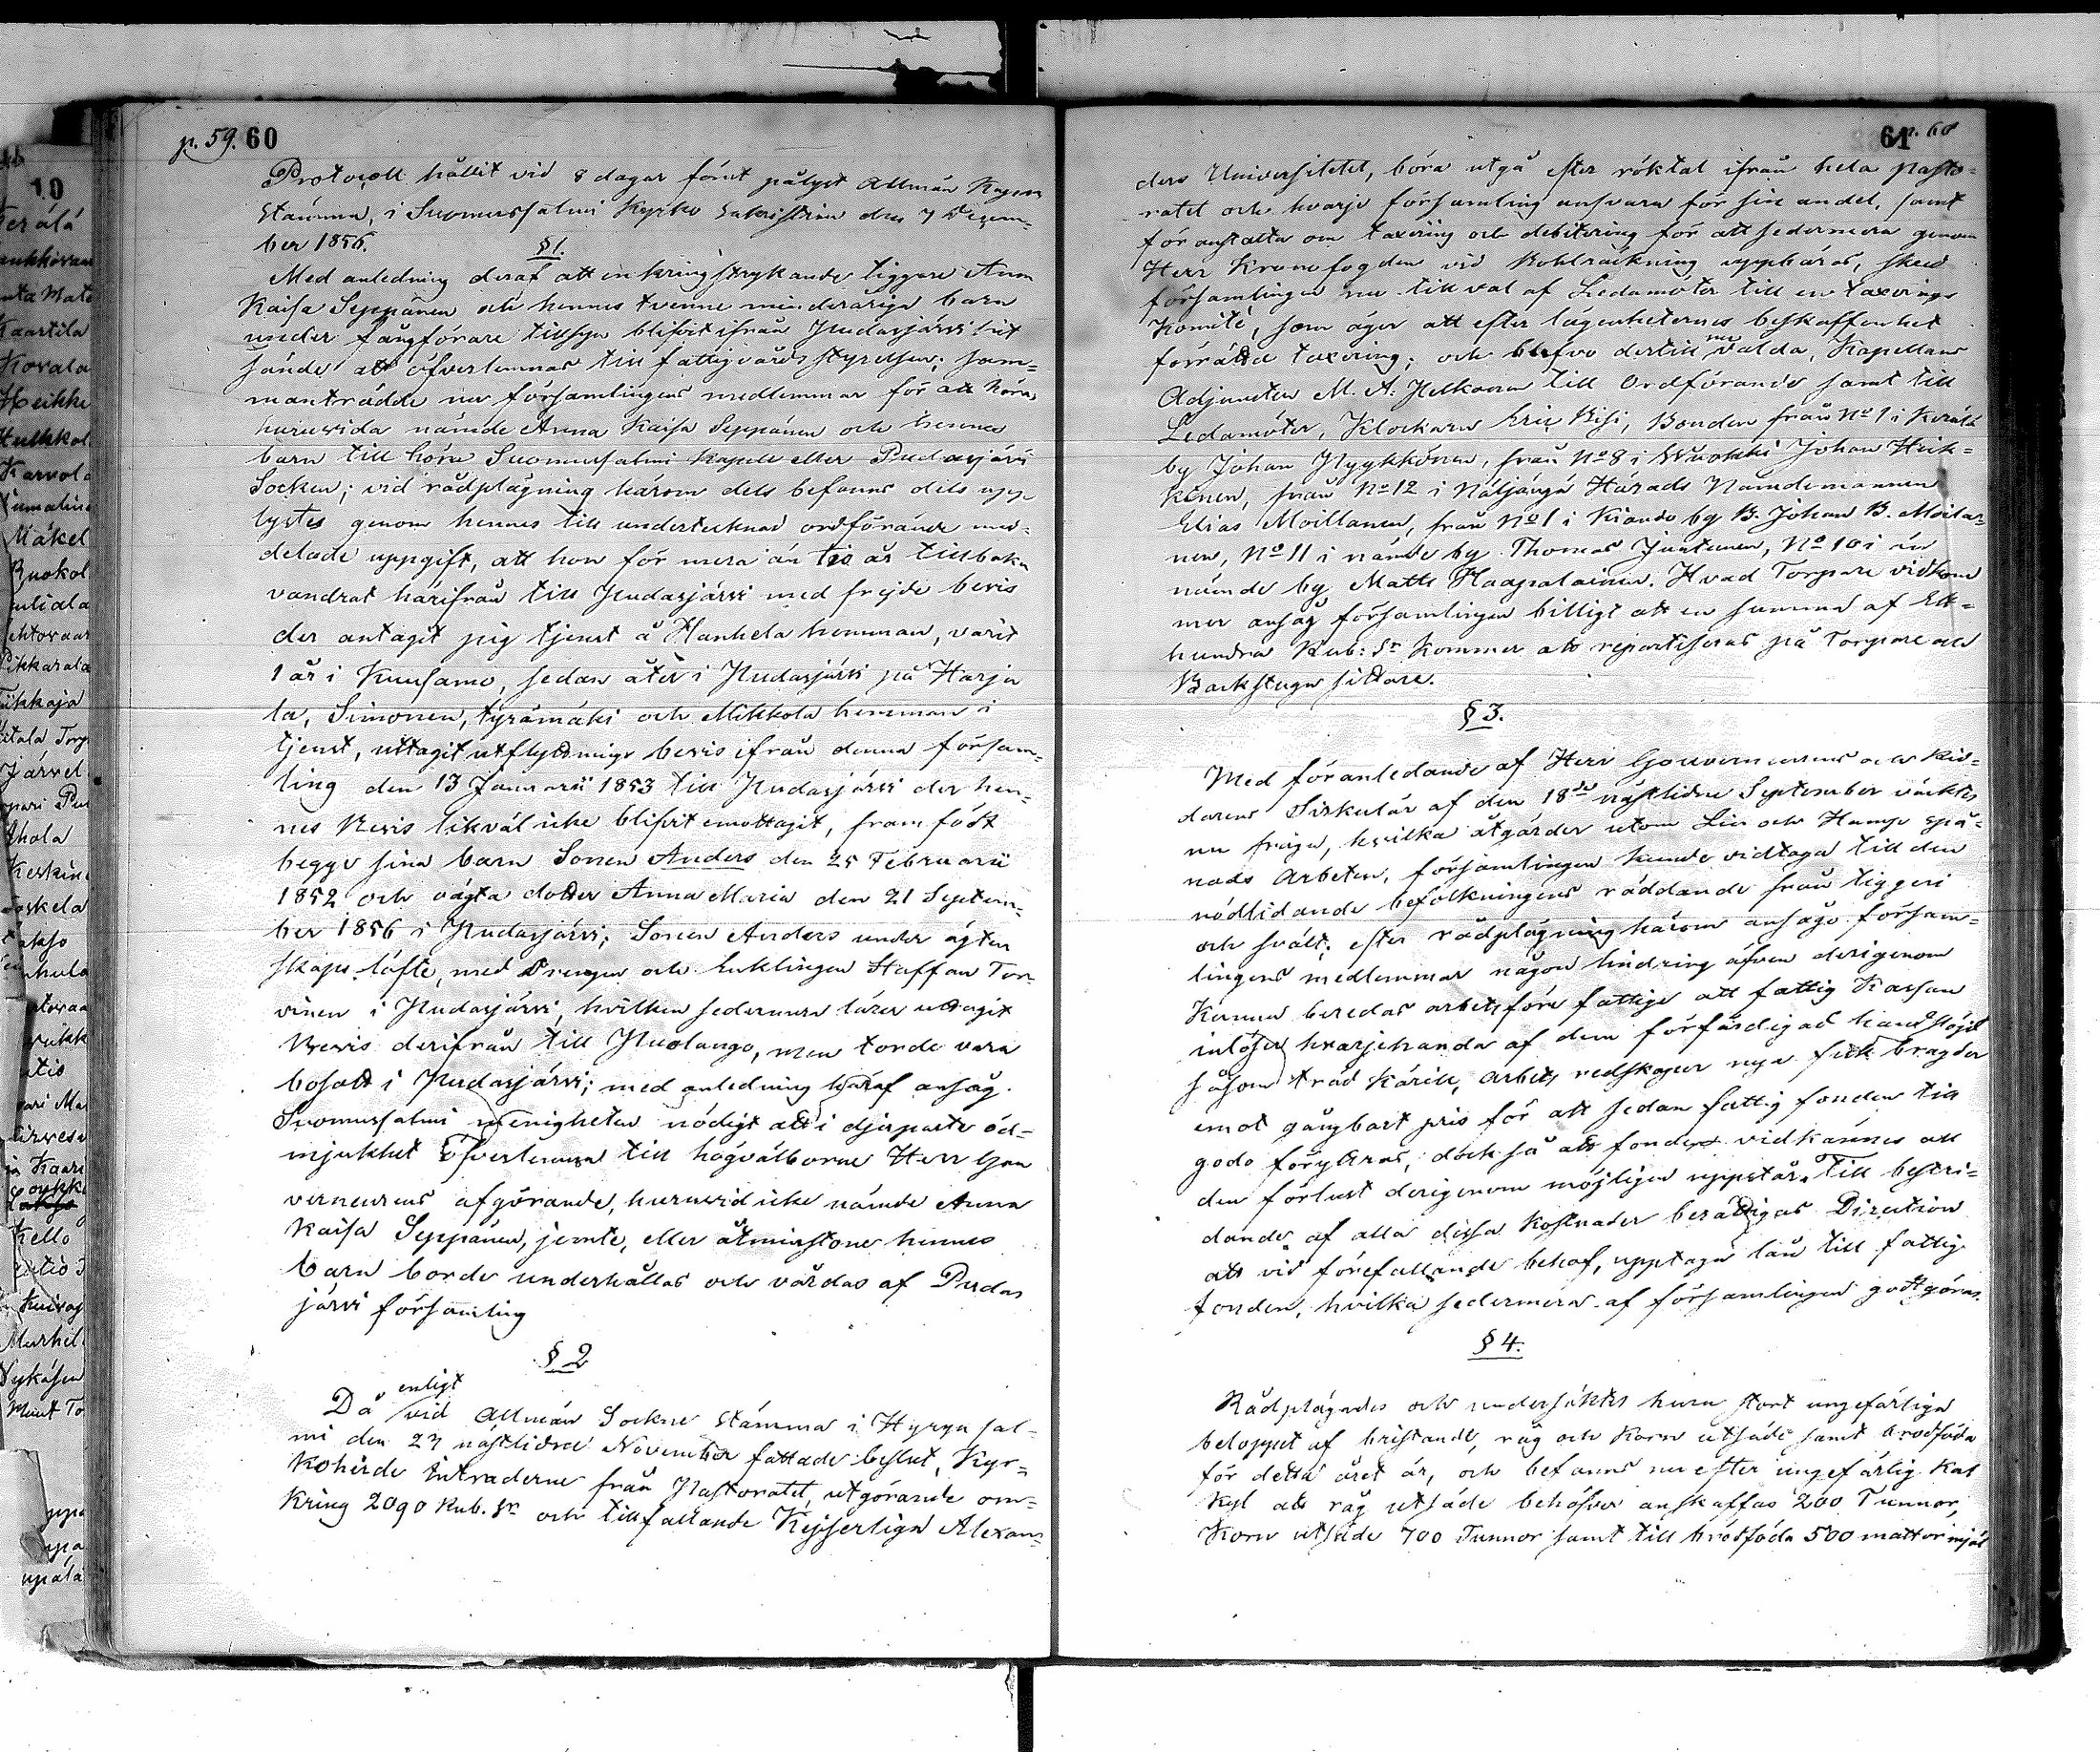 p. 59. 60
Protocoll hållit vid 8 dagar förut pålyst Allmän Kapell
Stämma, i Suomussalmi Kyrko Sakristian den 7 Decem-
ber 1856.
§ 1.
Med anledning deraf att en kringstrykande tiggare Anna
Kaisa Seppänen och hennes tvenne minderåriga barn
under fångförare tillsyn blifvit ifrån Pudasjärvi hit
sände att öfverlemnas till fattigvårds styrelsen; sam-
manträdde nu församlingens medlemmar för att höras
huruvida nämde Anna Kaisa Seppänen och hennes
barn till höra Suomussalmi Kapell eller Pudasjärvi
Socken; vid rådplägning härom dels befanns dels upp
lystes genom hennes till undertecknad ordförande med-
delade uppgift, att hon för mera än tio år tillbaka
vandrat härifrån till Pudasjärvi med frejde bevis
der antagit sig tjenst å Hanhela hemman, varit
1 år i Kuusamo, sedan åter i Pudasjärvi på Harju
la, Simonen, Syrämäki och Mikkola hemman i
tjenst, uttagit utflyttnings bevis ifrån denna försam-
ling den 13 Januarii 1853 till Pudasjärvi der hen-
nes Bevis likväl icke blifvit emottagit, framfödt
begge sina barn Sonen Anders den 25 Februarii
1852 och oägta dotter Anna Maria den 21 Septem-
ber 1856 i Pudasjärvi; Sonen Anders under ägten
skaps löfte, med Drengen och Enklingen Staffan Tor-
vinen i Pudasjärvi, hvilken sedermera lärer uttagit
Bevis derifrån till Puolango, men torde vara
bosatt i Pudasjärvi; med anledning häraf ansåg
Suomussalmi menigheten nödigt att i djupaste öd-
mjukhet öfverlemna till högvälborne Herr Gou
verneurens afgörande, huruvid icke nämde Anna
Kaisa Seppänen, jemte, eller åtminstone hennes
barn borde underhållas och vårdas af Pudas
järvi församling
§ 2
enligt
Då vid Allmän Sockne Stämma i Hyrynsal-
mi den 23 nästlidne November fattade beslut, Kyr-
koherde Intraderne från Pastoratet, utgörande om-
kring 2090 Rub. Sr och tillfallande Kejserliga Alexan-
61 p. 60
ders Universitetet, böra utgå efter röktal ifrån hela Pasto-
ratet och hvarje församling ansvara för sin andel, samt
för anstalta om taxering och debitering för att sedermera genom
Herr Kronofogden vid Bohlräckning uppbäras, sked
församlingen nu till val af Ledamöter till en taxerings
Komité, som äger att efter lägenheternes beskaffenhet
förrätta taxering; och blefvo dertill nu valda, Kapellans
Adjuncten M. A. Helkonen till Ordförande samt till
Ledamöter, Klockaren Eric Kisi, Bonden från No 1 i Kerälä
by Johan Nygkkönen, från No 8 i Wuokki Johan Heik-
kinen, från No 12 i Näljängä Härads Nämdemannen
Elias Moillanen, från No 1 i Kianda by B. Johan B. Moila-
nen, No 11 i nämde by Thomas Juntunen, No 10 i än
nämde by Matts Haapalainen. Hvad Torpare vidkom
mer ansåg församlingen billigt att en summa af Ett-
hundra Rub: Sr kommer att repartiseras på Torpare och
Backstugu sittare.
§ 3.
Med föranledande af Herr Gouverneurens och Rid-
darens Sirkulär af den 18de nästlidne September väcktes
nu fråga, hvilka åtgärder utom Lin och Hampe spå-
nads Arbeten, församlingen kunde vidtaga till den
nödlidande befolkningens räddande från tiggeri
och svält; efter rådplägning härom ansågo försam-
lingens medlemmar någon lindring äfven derigenom
kunna beredas arbetsföre fattige att fattig Kassan
inlöser hvarjehanda af dem förfärdigad hand slöjd
såsom träd kärill, arbets redskaper nya fisk bragder
emot gångbart pris för att sedan fattig fonden till
godo föryttras, dock så att fonden vidkännes all
den förlust derigenom möjligen uppstår. Till bestri-
dande af alla dessa kostnader berättigas Direction
att vid förefallande behof, upptaga lån till fattig
fonden, hvilka sedermera af församlingen godtgöras.
§ 4.
Rådplägades och undersöktes huru stort ungefärliga
beloppet af bristande, råg och korn utsäde samt brödföda
för detta året är, och befanns nu efter ungefärlig kal
kyl att råg utsäde behöfver anskaffas 200 Tunnor,
Korn utsäde 700 Tunnor samt till brödföda 500 mattor mjöl
10
Kerälä
Kaartila
Kovala
Heikki
Hulkkol
Karvola
Mäkel
Ruokol
Pikkarala
Järvel
Ahola
Kello